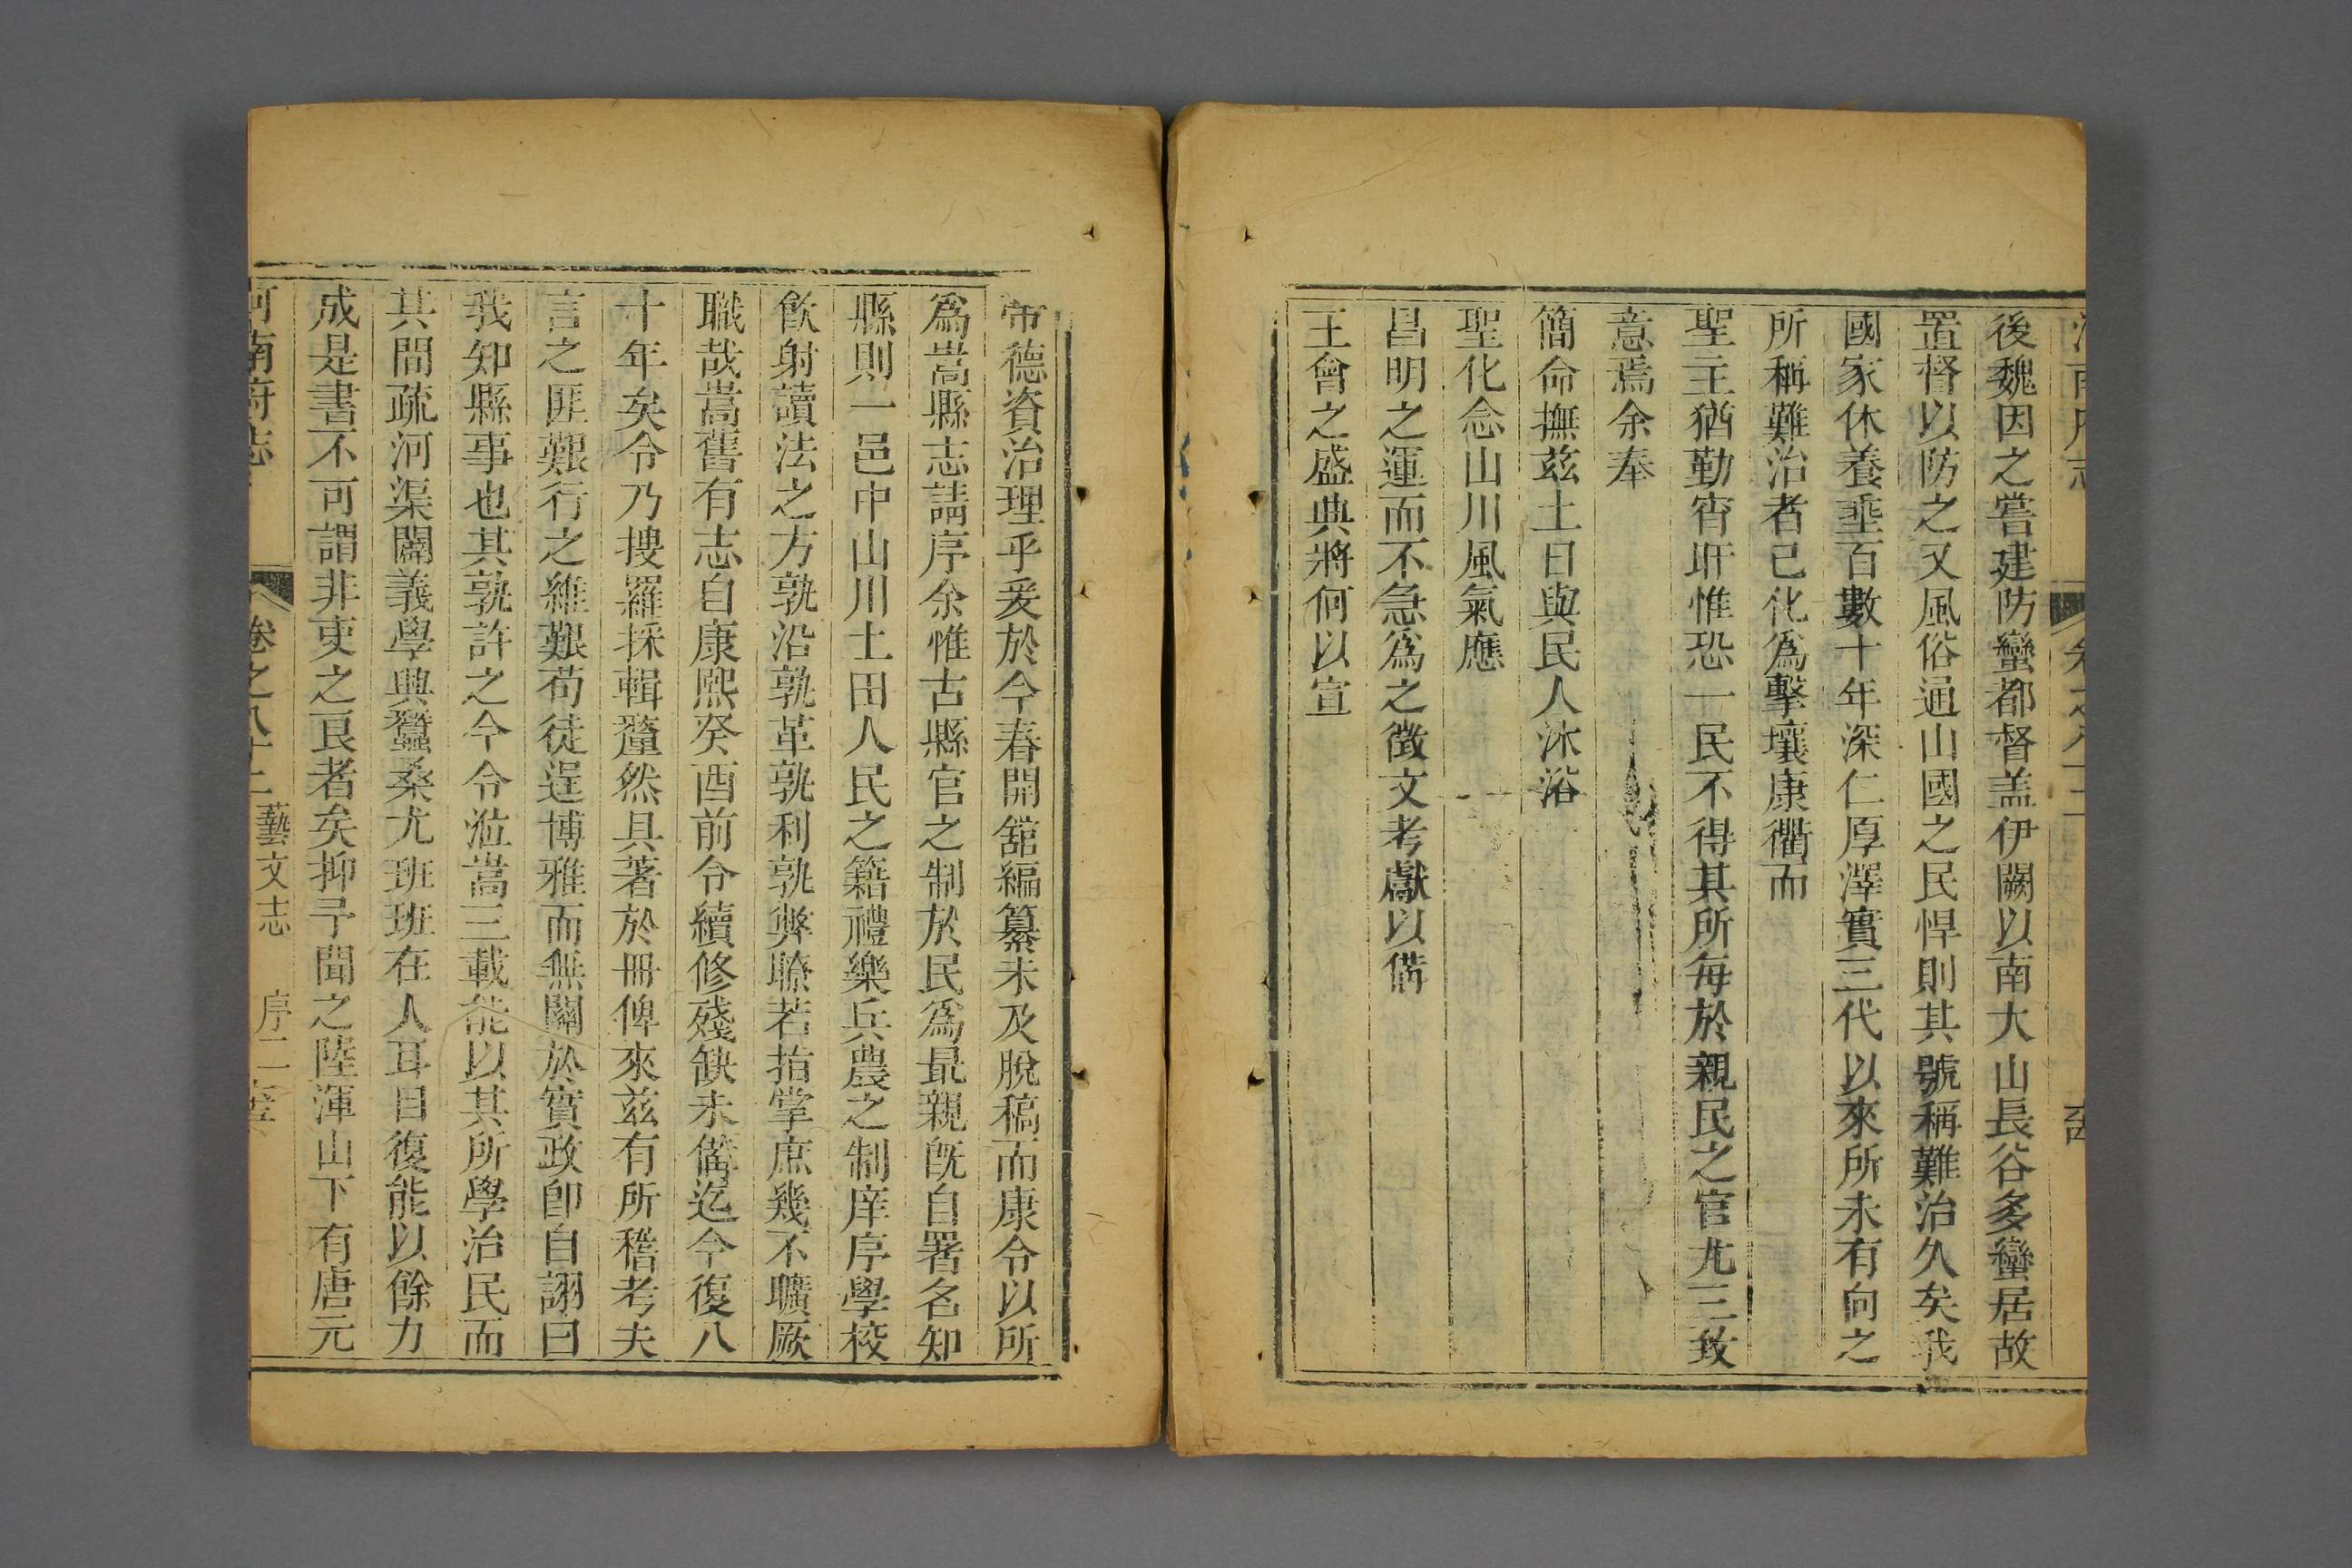 後魏因之嘗建防蠻都督盖伊闕以南大山長谷多蠻居故
置督以防之又風俗通山國之民悍則其號稱難治久矣我
國家休養埀百數十年深仁厚澤實三代以來所未有向之
所稱難治者已化爲擊壤康衢而
聖主猶勤宵旰惟恐一民不得其所每於親民之官尤三致
意焉余奉
簡命撫兹土日與民人沐浴
聖化念山川風氣應
昌明之運而不急爲之徵文考獻以備
王會之盛典將何以宣
帝德資治理乎爰於今春開舘編纂未及脫稿而康令以所
爲嵩縣志請序余惟古縣官之制於民爲最親旣自署名知
縣則一邑中山川土田人民之籍禮樂兵農之制庠序學校
飲射讀法之方孰沿孰革孰利孰弊瞭若指掌庶幾不曠厥
職哉嵩舊有志自康熙癸酉前令續修殘缺未備迄今復八
十年矣令乃搜羅採輯釐然具著於冊俾來兹有所稽考夫
言之匪艱行之維艱苟徒逞博雅而無關於實政卽自詡曰
我知縣事也其孰許之今令涖嵩三載能以其所學治民而
其間疏河渠闢義學興蠶桑尤班班在人耳目復能以餘力
成是書不可謂非吏之良者矣抑予聞之陸渾山下有唐元
河南府志 卷之八十二 藝文志 序二